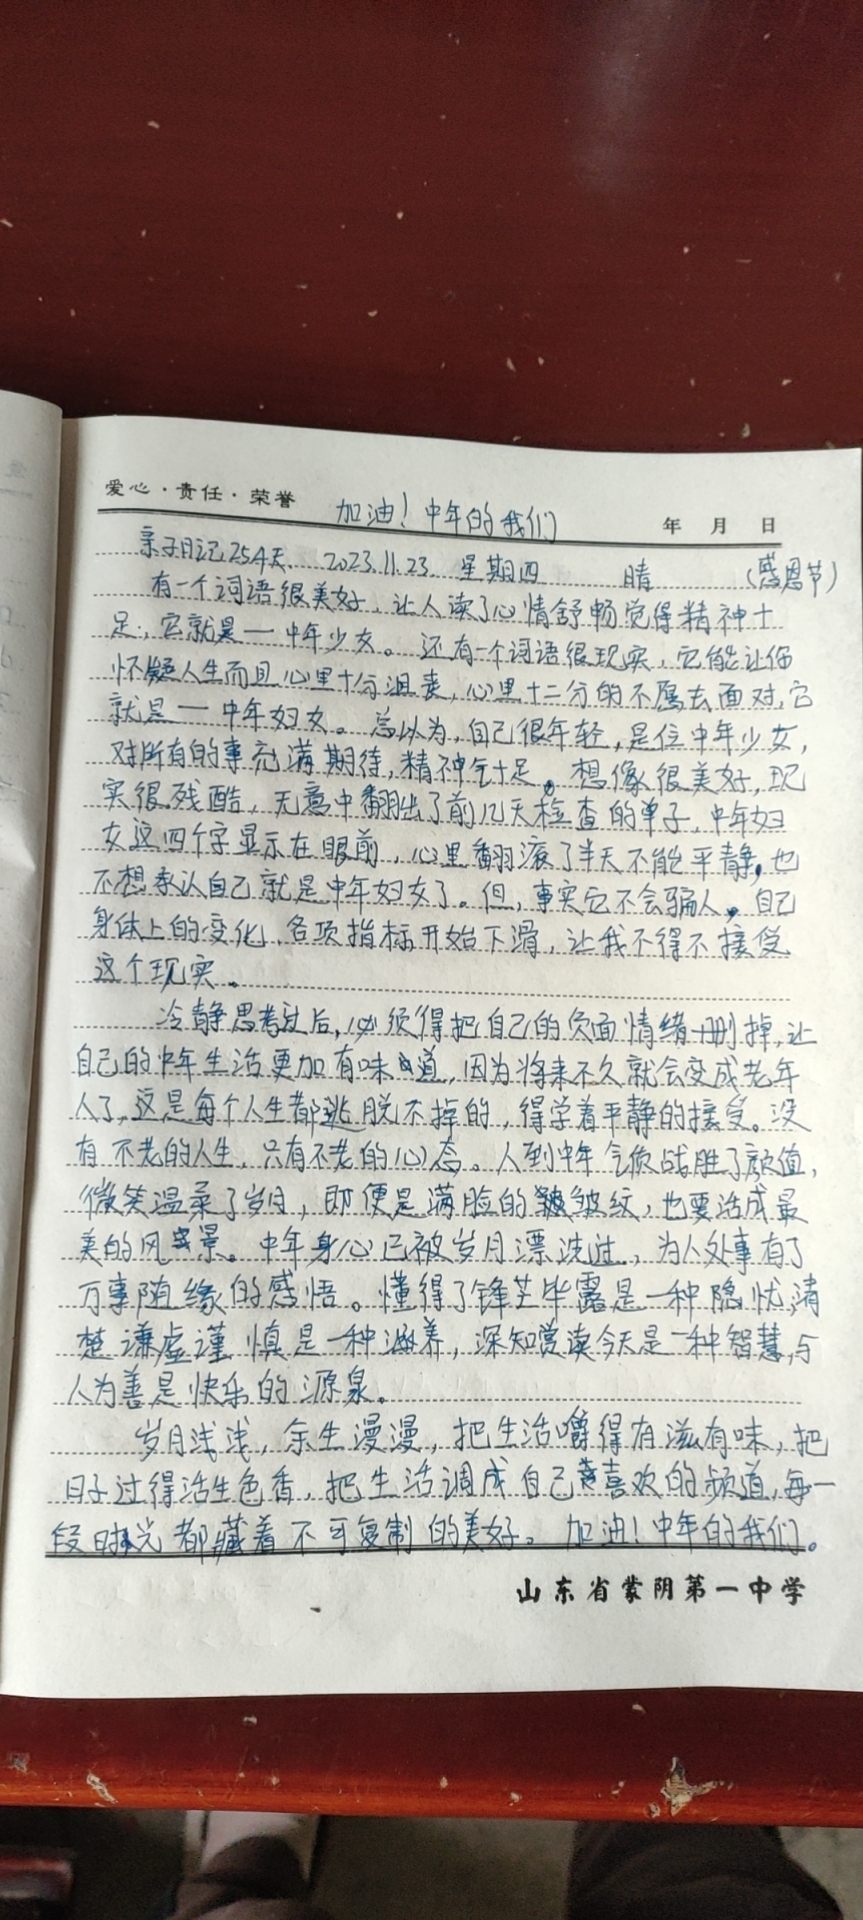 爱心·责任·荣誉
加油！中年的我们
年 月 日
亲子日记254天 2023.11.23 星期四 晴 （感恩节）
有一个词语很美好，让人读了心情舒畅觉得精神十
足，它就是一中年少女。还有一个词语很现实，它能让你
怀疑人生而且心里十分沮丧，心里十二分的不愿去面对，它
就是一中年妇女。总以为，自己很年轻，是位中年少女，
对所有的事充满期待，精神气十足。想像很美好，现
实很残酷，无意中翻出了前几天检查的单子，中年妇
女这四个字显示在眼前，心里翻滚了半天不能平静，也
不想承认自己就是中年妇女了。但，事实它不会骗人，自己
身体上的变化，各项指标开始下滑，让我不得不接受
这个现实。
冷静思考过后，必须得把自己的负面情绪删掉，让
自己的中年生活更加有味道，因为将来不久就会变成老年
人了，这是每个人生都逃脱不掉的，得学着平静的接受。没
有不老的人生，只有不老的心态。人到中年气质战胜了颜值，
微笑温柔了岁月，即便是满脸的皱纹，也要活成最
美的风景。中年身心已被岁月漂洗过，为人处事有了
万事随缘的感悟。懂得了锋芒毕露是一种隐忧，清
楚谦虚谨慎是一种涵养，深知赏读今天是一种智慧，与
人为善是快乐的源泉。
岁月浅浅，余生漫漫，把生活嚼得有滋有味，把
日子过得活生色香，把生活调成自己喜欢的频道，每一
段时光都藏着不可复制的美好。加油！中年的我们。
山东省蒙阴第一中学